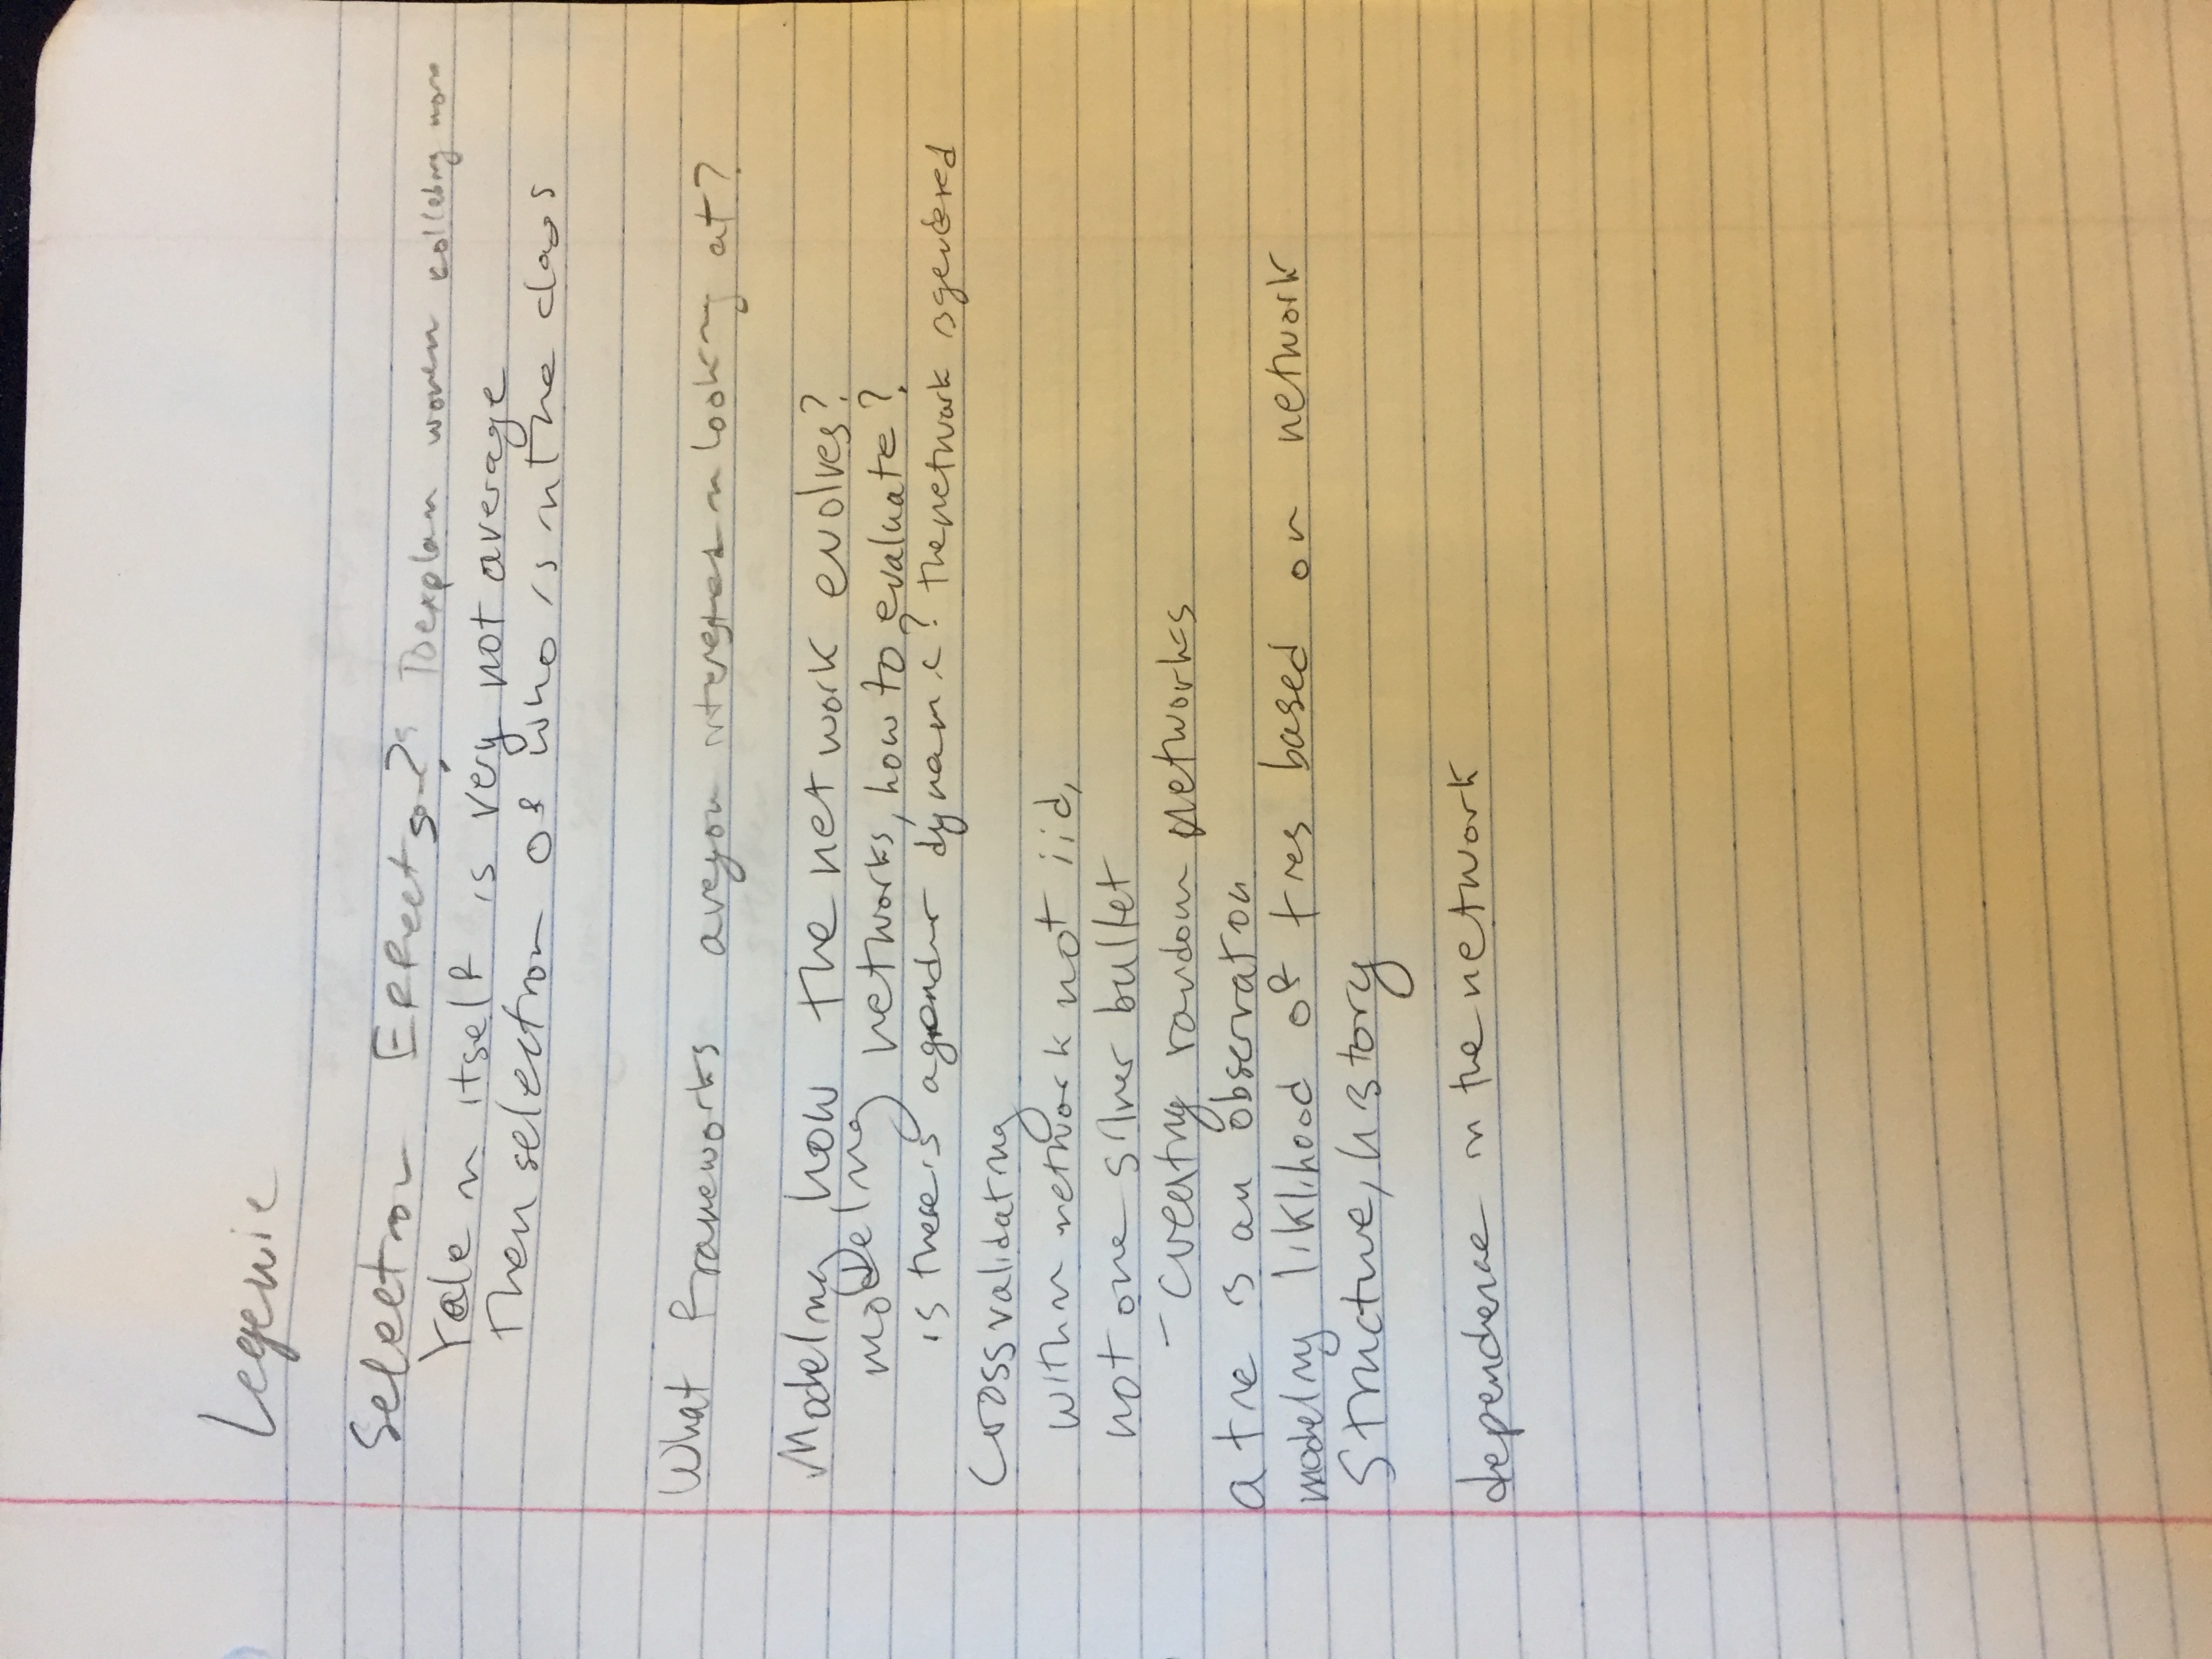 Legewie
Selection Effects? To explain women collabing more
Yale in itself is very not average
Then selection of who is in the class
What frameworks are you interested in looking at?
Modeling how the network evolves?
modeling networks, how to evaluate?
is there is a gender dynamic? the network is gendered
Cross validating
within network not iid,
not one silver bullet
- creating random networks
a tie is an observation
modeling liklihood of ties based on network
structure, history
dependence in the network